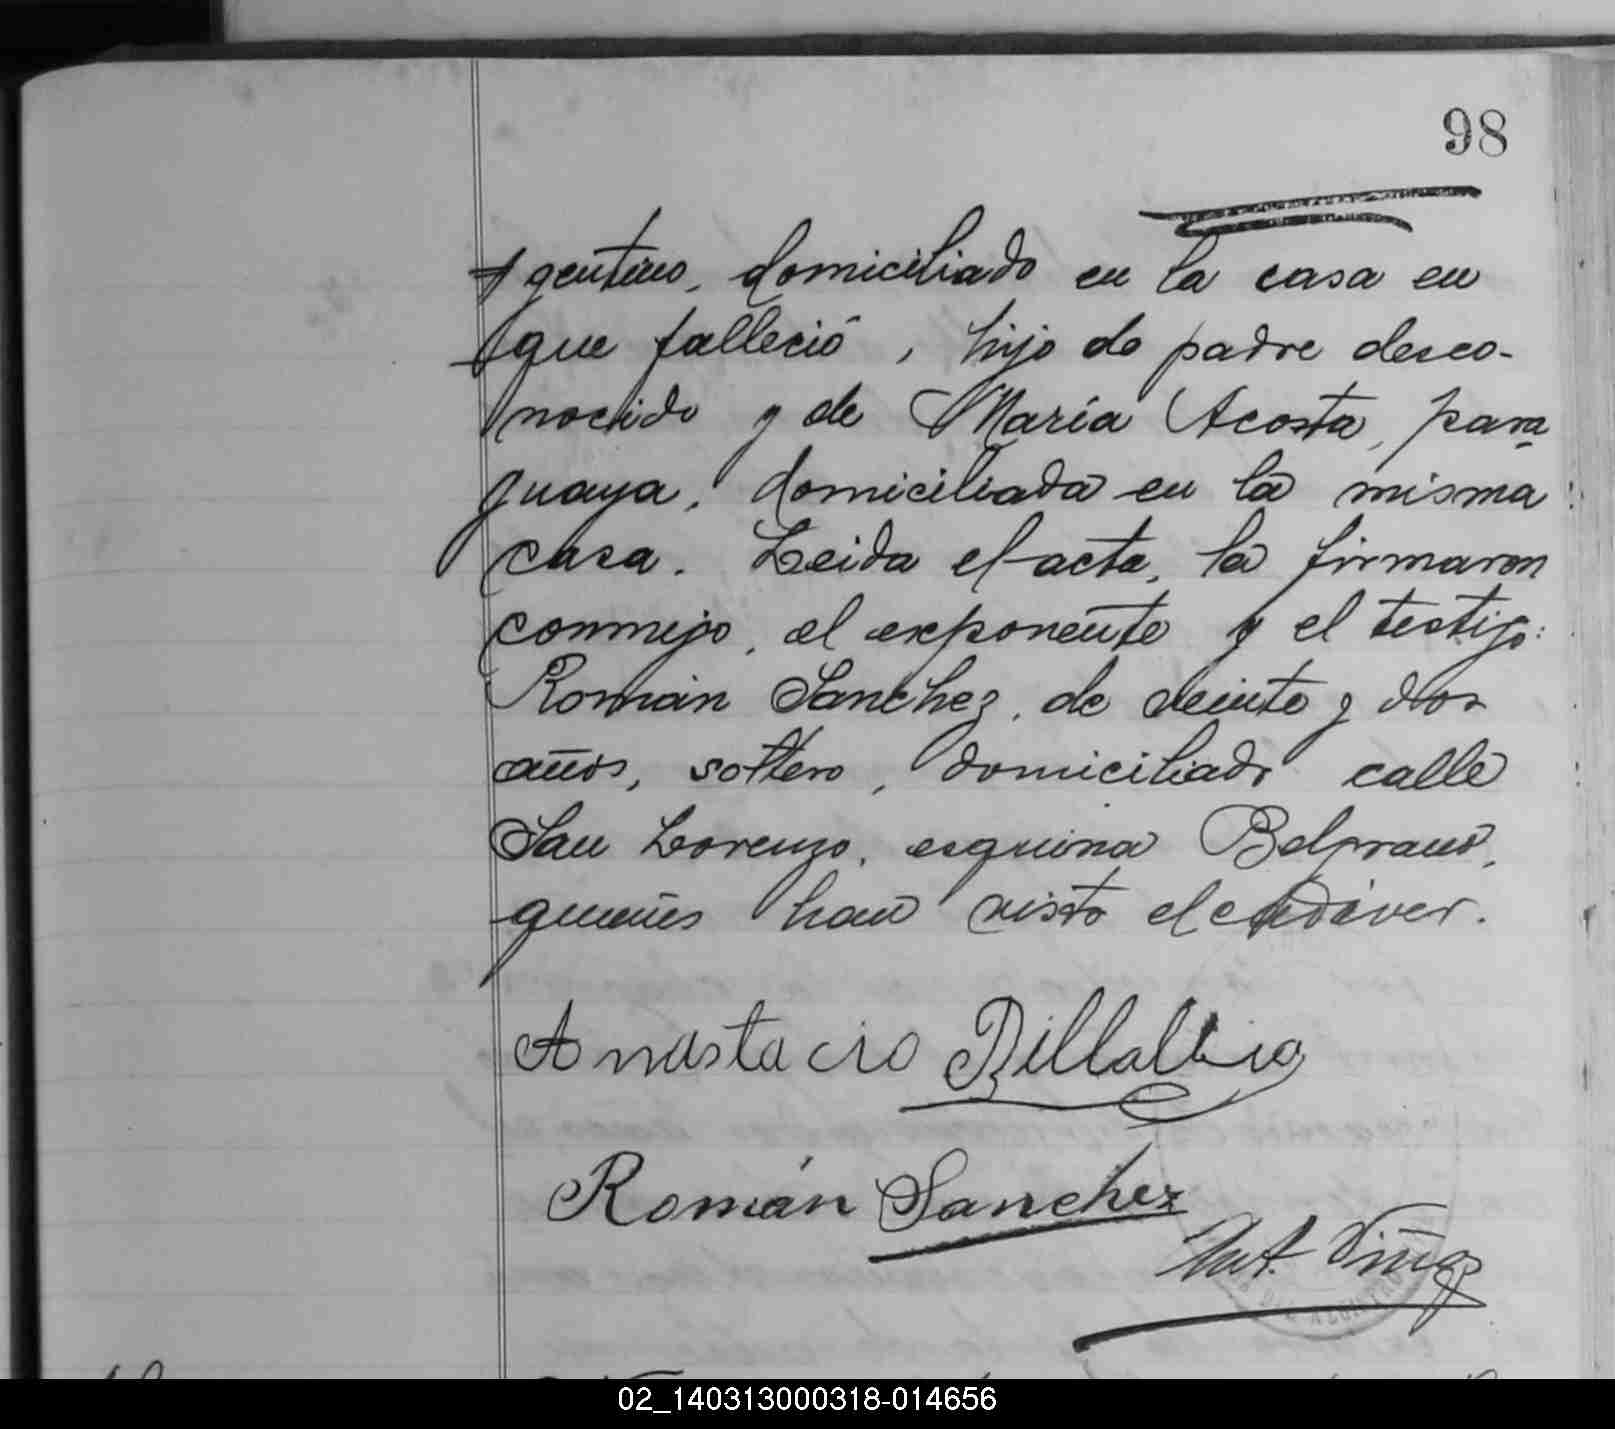 98
gentino, domiciliado en la casa en
que falleció, hijo de padre desco-
nocido y de María Acosta, para
guaya, domiciliada en la misma
casa. Leida el acta, la firmaron
conmigo, el exponente y el testigo:
Román Sanchez, de veinte y dos
años, soltero, domiciliado calle
San Lorenzo, esquina Belgrano,
quienes han visto el cadáver.
Anastacio Billalba
Román Sanchez
Ant. Viñas
02_140313000318-014656